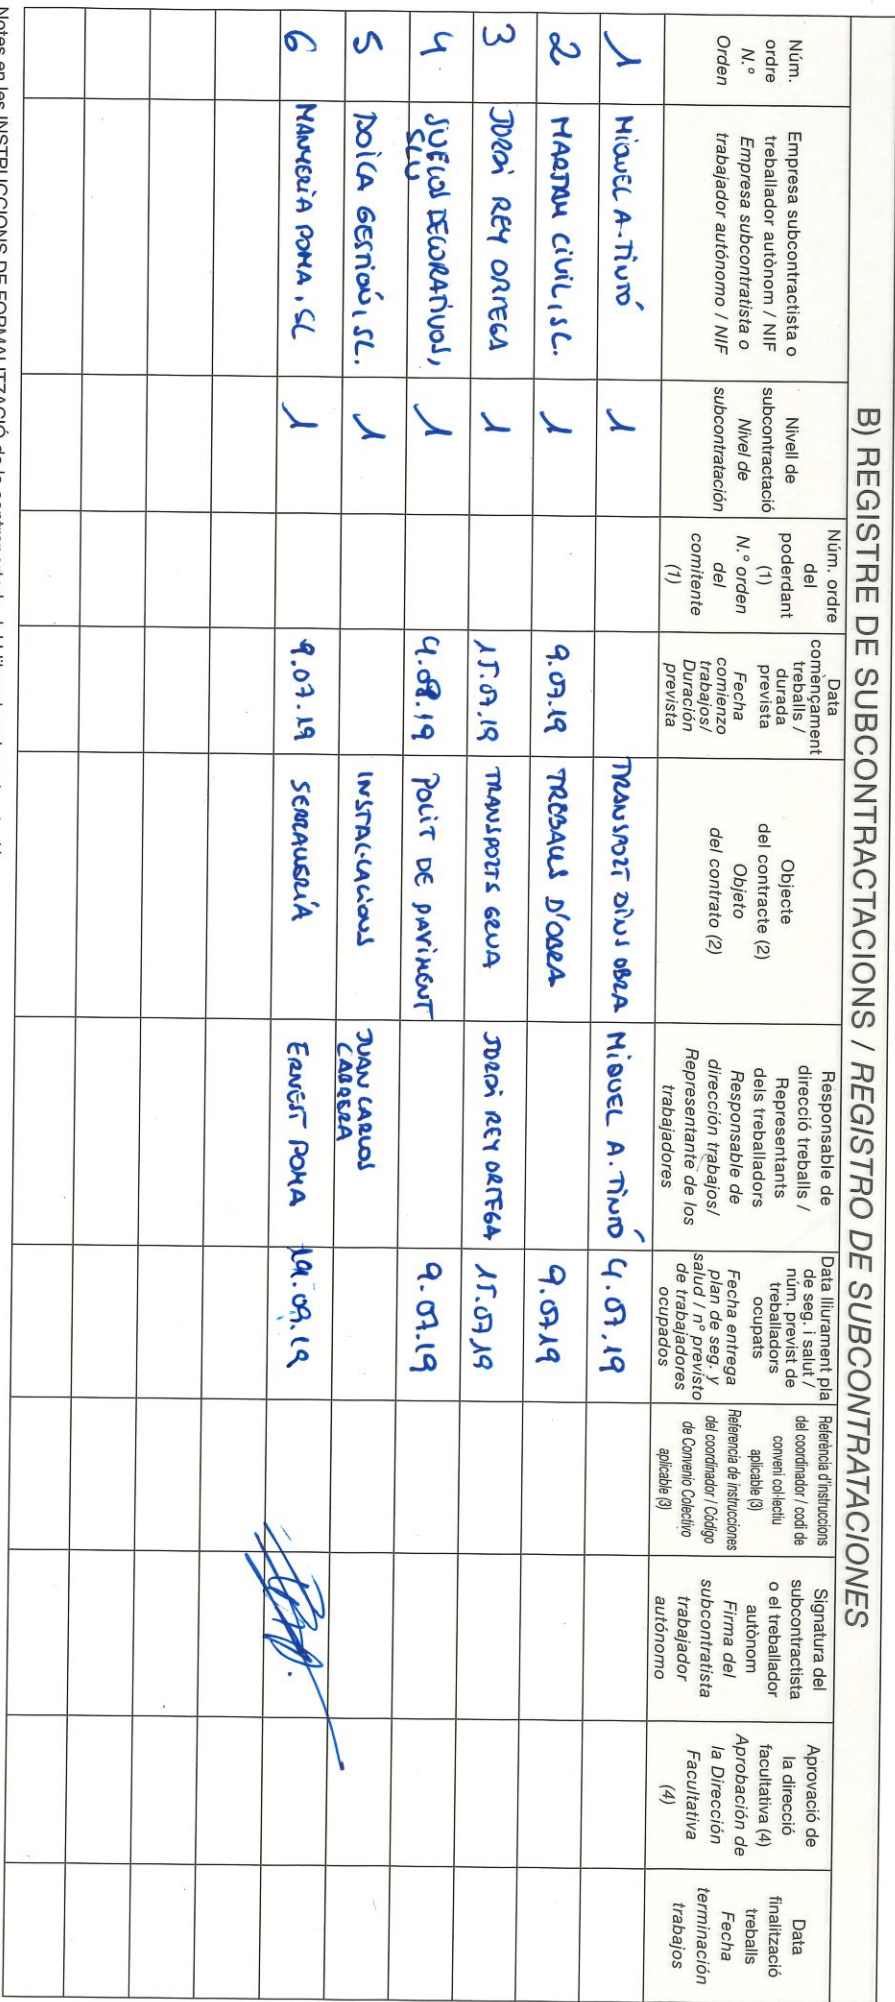 B) REGISTRE DE SUBCONTRACTACIONS / REGISTRO DE SUBCONTRATACIONES
Núm. ordre
N.º Orden
Empresa subcontractista o treballador autònom / NIF
Empresa subcontratista o trabajador autónomo / NIF
Nivell de subcontractació
Nivel de subcontratación
Núm. ordre del poderdant (1)
N.º orden del comitente (1)
Data començament treballs / durada prevista
Fecha comienzo trabajos/ Duración prevista
Objecte del contracte (2)
Objeto del contrato (2)
Responsable de direcció treballs / Representants dels treballadors
Responsable de dirección trabajos/ Representante de los trabajadores
Data lliurament pla de seg. i salut / núm. previst de treballadors ocupats
Fecha entrega plan de seg. y salud / nº previsto de trabajadores ocupados
Referència d'instruccions del coordinador / codi de conveni col·lectiu aplicable (3)
Referencia de instrucciones del coordinador / Código de Convenio Colectivo aplicable (3)
Signatura del subcontractista o el treballador autònom
Firma del subcontratista trabajador autónomo
Aprovació de la direcció facultativa (4)
Aprobación de la Dirección Facultativa (4)
Data finalització treballs
Fecha terminación trabajos
1 MIQUEL A. TINTÓ 1 TRANSPORT DINS OBRA MIQUEL A. TINTÓ 4.07.19
2 MARTAM CIVIL, SL. 1 9.07.19 TREBALLS D'OBRA 9.07.19
3 JORDI REY ORTEGA 1 15.07.19 TRANSPORTS GRUA JORDI REY ORTEGA 15.07.19
4 SUELOS DECORATIVOS, SLU 1 POLIT DE PAVIMENT 9.07.19
5 DOICA GESTIÓN, SL. 1 INSTAL·LACIONS JUAN CARLOS CABRERA
6 MANYERIA POMA, SL 1 9.07.19 SERRALLERIA ERNEST POMA
Notes en les INSTRUCCIONS DE FORMALITZACIÓ de la